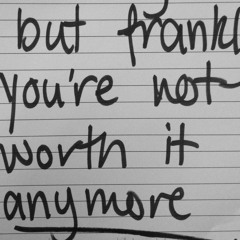 but frankl
you're not
worth it
anymore